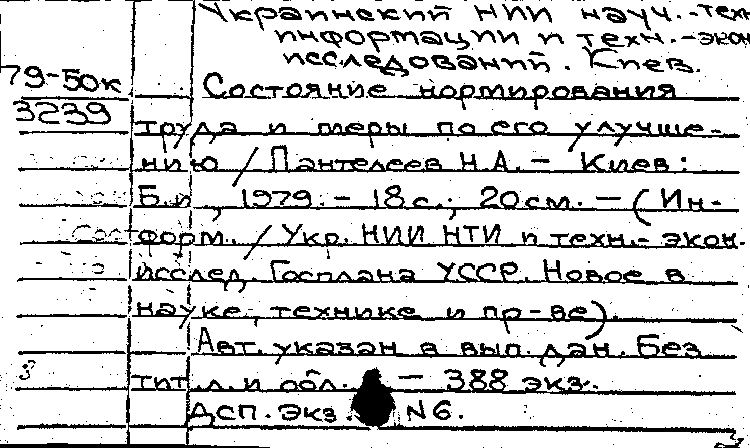 Украинский НИИ науч.-техн
информации и техн.-экон
исследований. Киев.
79-50к Состояние нормирования
3239 труда и меры по его улучше-
нию / Пантелеев Н.А. – Киев:
Б.и, 1979. – 18с.; 20см. – (Ин-
форм. / Укр. НИИ НТИ и техн.- экон.
исслед. Госплана УССР. Новое в
науке, технике и пр-ве).
Авт. указан в вып. дан. Без
тит.л. и обл. – 388 экз.
Дсп. Экз N6.